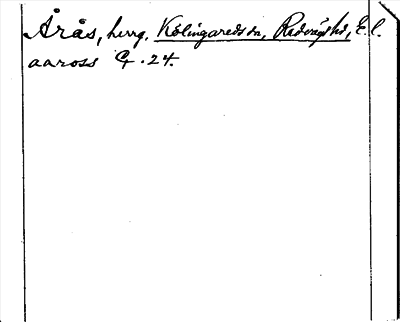 Årås, herrg. Kölingareds sn, Redvägs hd, E. l.
aaross G. 24.